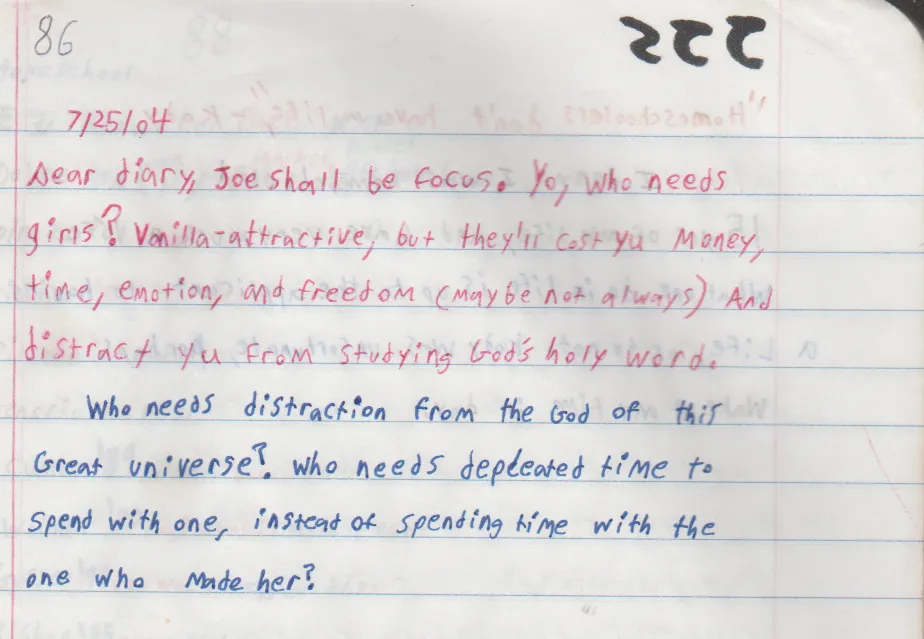 86
222
7/25/04
Dear diary, Joe shall be focus. Yo, who needs
girls? Vanilla-attractive, but they'll cost yu money,
time, emotion, and freedom (maybe not always) And
distract yu from studying God's holy word.
Who needs distraction from the God of this
Great universe? Who needs depleated time to
spend with one, instead of spending time with the
one who made her?